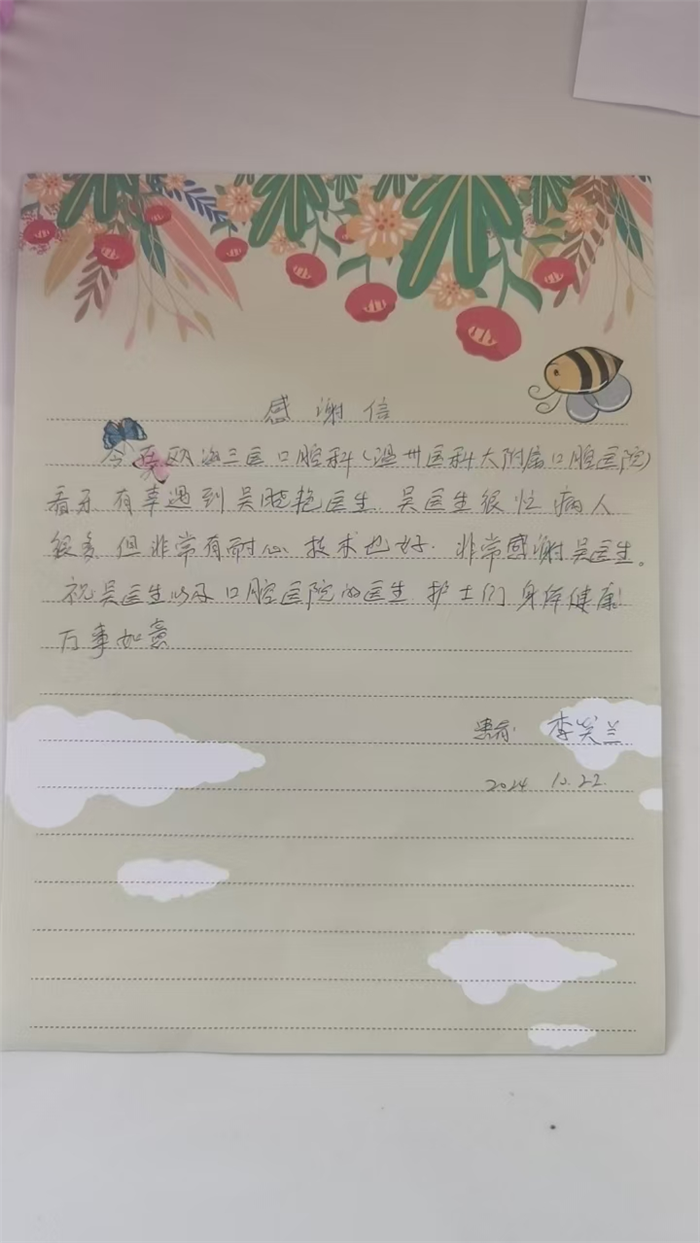 感谢信
今天瓯海三医口腔科(温州医科大附属口腔医院)
看牙有幸遇到吴晓艳医生 吴医生很忙病人
很多 但非常有耐心 技术也好. 非常感谢吴医生。
祝吴医生以及口腔医院的医生 护士们身体健康!
万事如意
患者: 李笑兰
2024 10.22